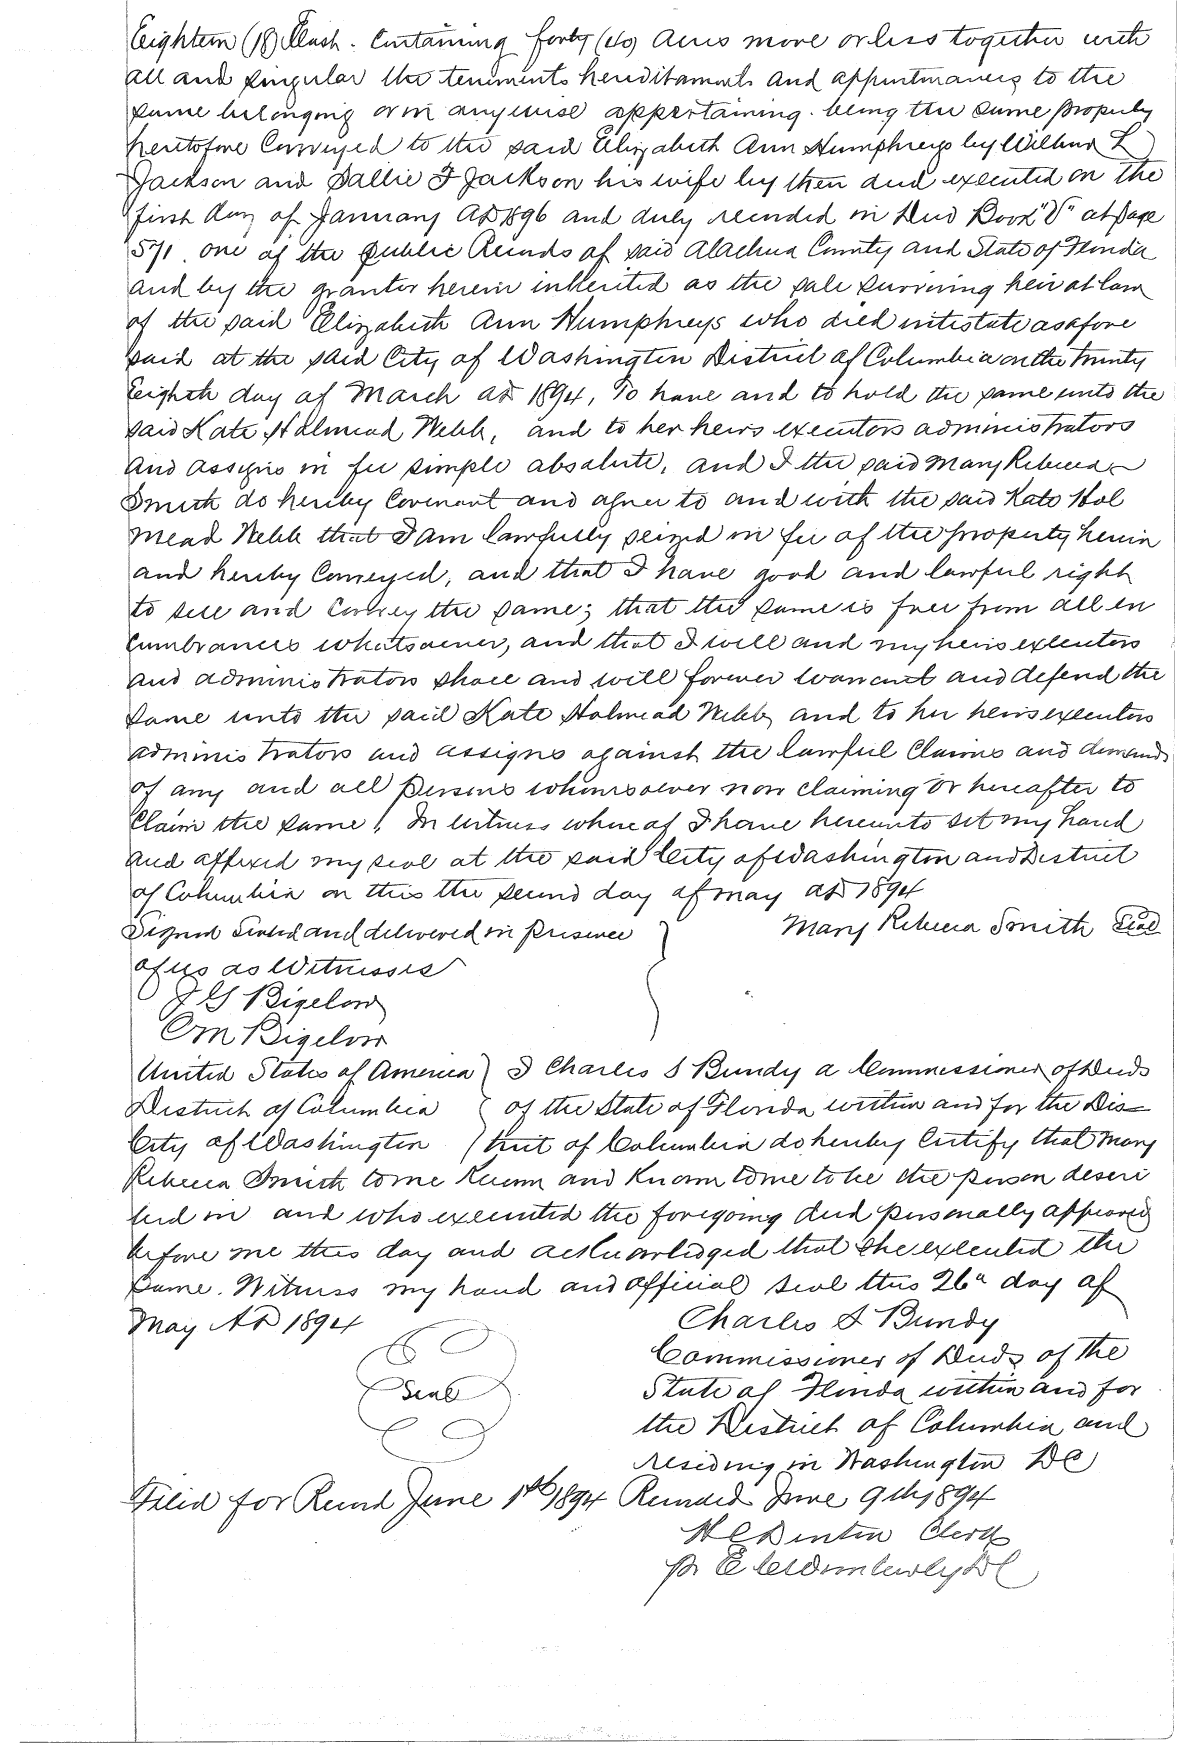 Eighteen (18) East. Containing forty (40) Acres more or less together with
all and singular the tenements hereditaments and appurtenances to the
same belonging or in anywise appertaining. being the same property
heretofore Conveyed to the said Elizabeth Ann Humphreys by Wilbur L
Jackson and Sallie F Jackson his wife by their deed executed on the
first day of January AD 1896 and duly recorded in Deed Book "V" at page
571. one of the public Records of said Alachua County and State of Florida
and by the grantor herein inherited as the sole surviving heir at law
of the said Elizabeth Ann Humphreys who died intestate as afore
said at the said City of Washington District of Columbia on the twenty
Eighth day of March AD 1894, To have and to hold the same unto the
said Kate Holmead Webb, and to her heirs executors administrators
and assigns in fee simple absolute, and I the said Mary Rebecca
Smith do hereby Covenant and agree to and with the said Kate Hol
mead Webb that I am lawfully seized in fee of the property herein
and hereby Conveyed, and that I have good and lawful right
to sell and Convey the same; that the same is free from all en
cumbrances whatsoever, and that I will and my heirs executors
and administrators shall and will forever warrant and defend the
same unto the said Kate Holmead Webb and to her heirs executors
administrators and assigns against the lawful Claims and demands
of any and all persons whomsoever now claiming or hereafter to
Claim the same. In witness whereof I have hereunto set my hand
and affixed my seal at the said City of Washington and District
of Columbia on this the second day of May AD 1894
Signed Sealed and delivered in presence Mary Rebecca Smith Seal
of us as Witnesses
J G Bigelow
O M Bigelow
United States of America I Charles S Bundy a Commissioner of Deeds
District of Columbia of the State of Florida within and for the Dis=
City of Washington trict of Columbia do hereby Certify that Mary
Rebecca Smith to me known and known to me to be the person descri
bed in and who executed the foregoing deed personally appeared
before me this day and acknowledged that she executed the
same. Witness my hand and official seal this 26th day of
May AD 1894 Charles S Bundy
Seal
Commissioner of Deeds of the
State of Florida within and for
the District of Columbia and
residing in Washington DC
Filed for Record June 1st 1894 Recorded June 9th 1894
H C Denton Clerk
pr E C